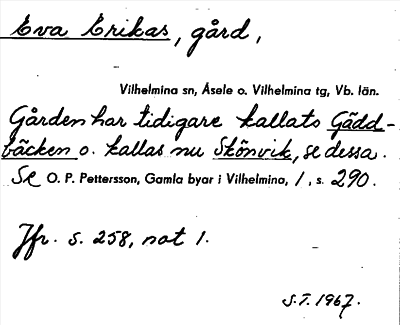 Eva Erikas, gård,
Vilhelmina sn, Åsele o. Vilhelmina tg, Vb. län.
Gården har tidigare kallats Gädd-
bäcken o. kallas nu Skönvik, se dessa.
Se O. P. Pettersson, Gamla byar i Vilhelmina, 1, s. 290.
Jfr. s. 258, not 1.
S.T. 1967.